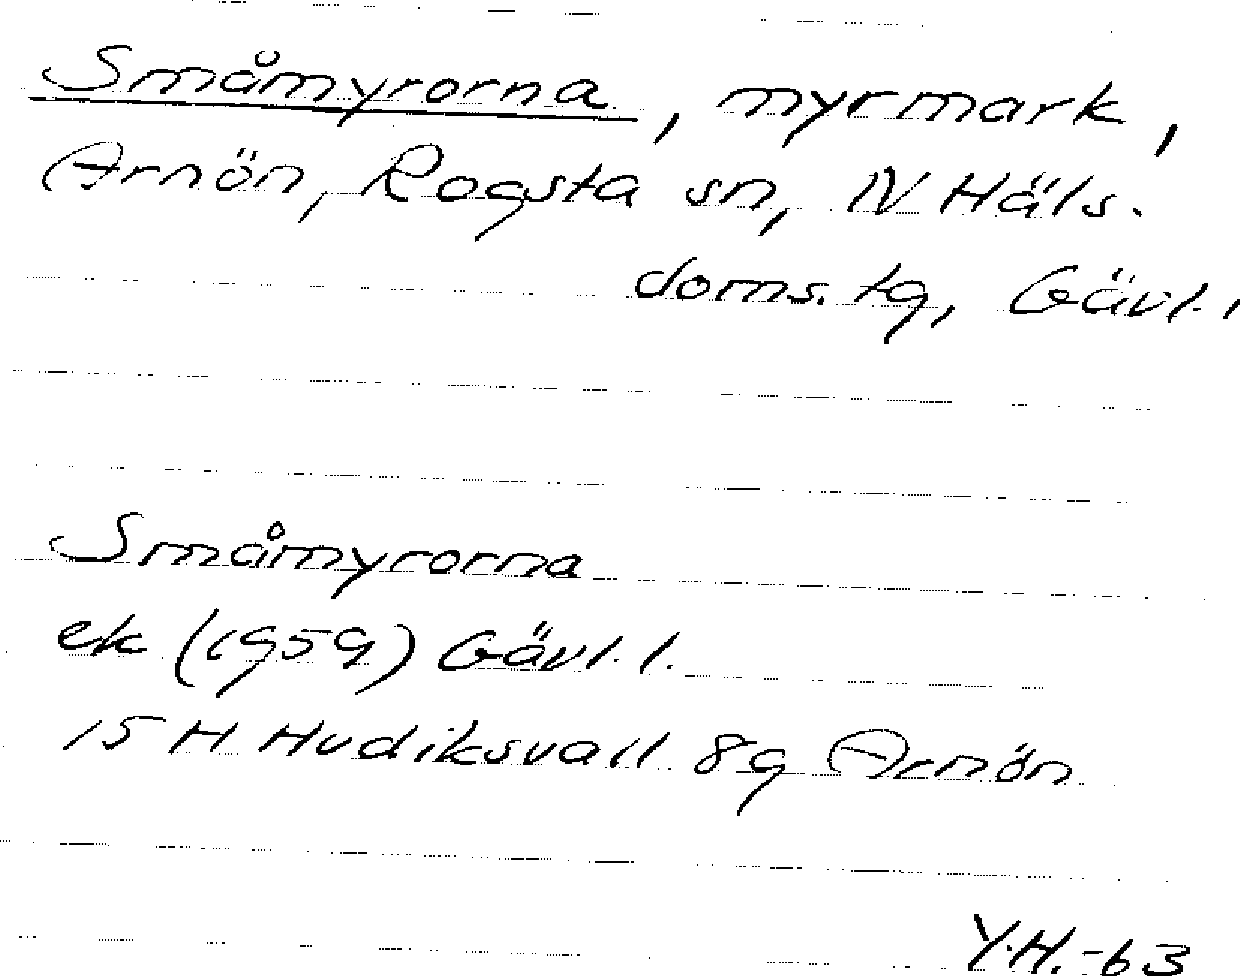 Småmyrorna, myrmark,
Arnön, Rogsta sn, N Häls.
doms. tg, Gävl.l
Småmyrorna
ek (1959) Gävl. l.
15 H Hudiksvall 8g Arnön
Y.H.-63